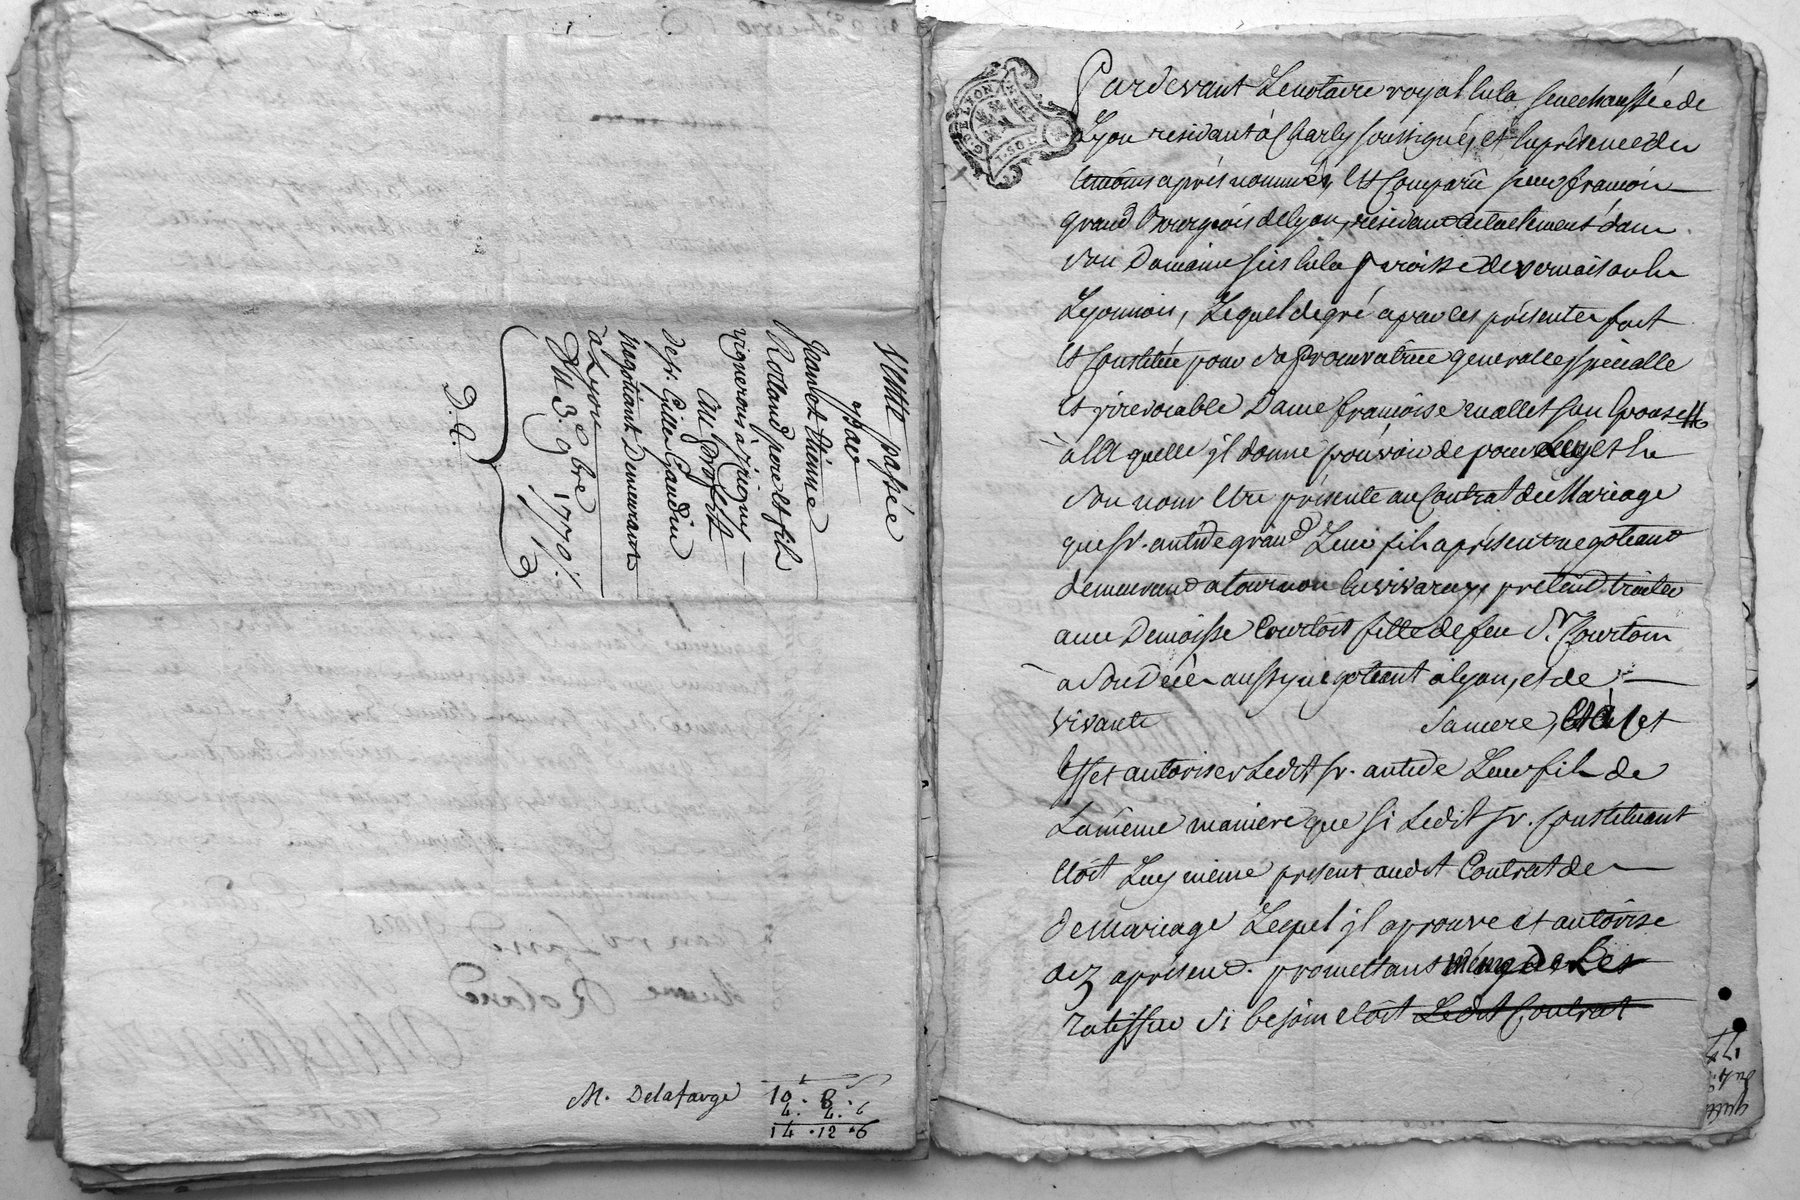 Vente passée
par
Jean et Etienne
Rolland pere et fils
vignerons à jrigny
Au Profit
de sr. Gille Gaudin
negotiant Demeurant
à Lyon
Du 3e. 9bre 1770
D. a.
M. Delafarge
10. 8.
4. 4. 6
14. 12. 6
G. DE LYON
1. SOL
Pardevant Le notaire royal en la senechaussée de
Lyon residant à Charly soussigné, et en presence des
temoins après nommés, Est Comparu sieur françois
grand Bourgeois de lyon, résidant actuellement dans
son Domaine scis en la Paroisse de vernaison en
Lyonnois, Lequel de gré a par ces présentes fait
et Constitué pour sa Procuratrice generalle et spécialle
et jrrevocable Dame françoise mallet son Epouse
à la quelle jl donne pouvoir de pour Luy et en
son nom Etre présente au Contrat de Mariage
que sr. antide grand Leur fils a présent negotiant
demeurant a tournon en vivarez, prétend traiter
avec Demoiselle Courtois fille de feu Sr. Courtois
a son Décès aussy negotiant à lyon, et de
vivante sa mere, et à cet
Effet autoriser Ledit sr. antide Leur fils de
La même maniere que si Ledit sr. Constituant
Etoit Luy même present audit Contrat de
de Mariage Lequel jl aprouve et autorise
dez apresent. promettant même de Les
ratiffier si besoin etoit Ledit Contrat